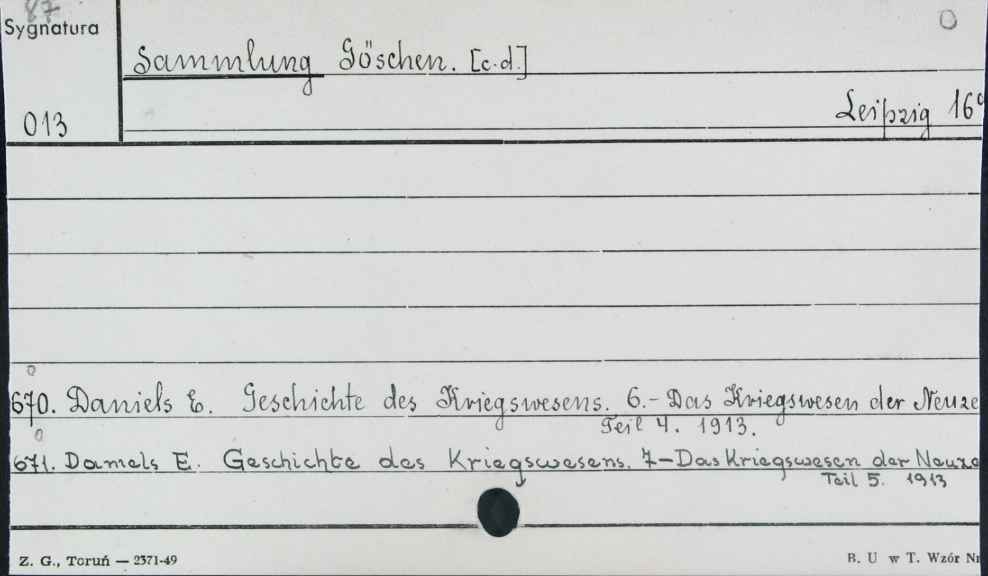 87
Sygnatura
Sammlung Göschen. [c.d.]
Leipzig 16°
013
670. Daniels E. Geschichte des Kriegswesens. 6.- Das Kriegswesen der Neuze
Teil 4. 1913.
671. Daniels E. Geschichte des Kriegswesens. 7-Das Kriegswesen der Neuze
Teil 5. 1913
Z. G., Toruń — 2371-49
B. U w T. Wzór Nr